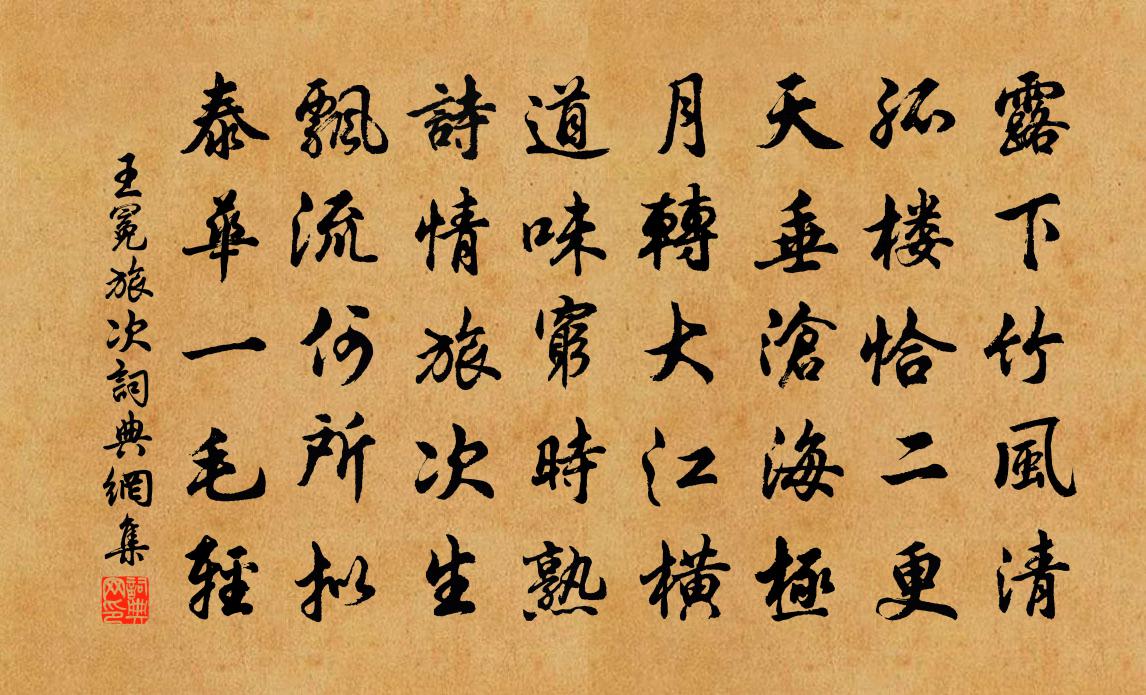 露下竹風清
孤楼恰二更
天垂滄海極
月轉大江橫
道味窮時熟
詩情旅次生
飄流何所拟
泰華一毛輕
王冕旅次詞典網集
詞典网印